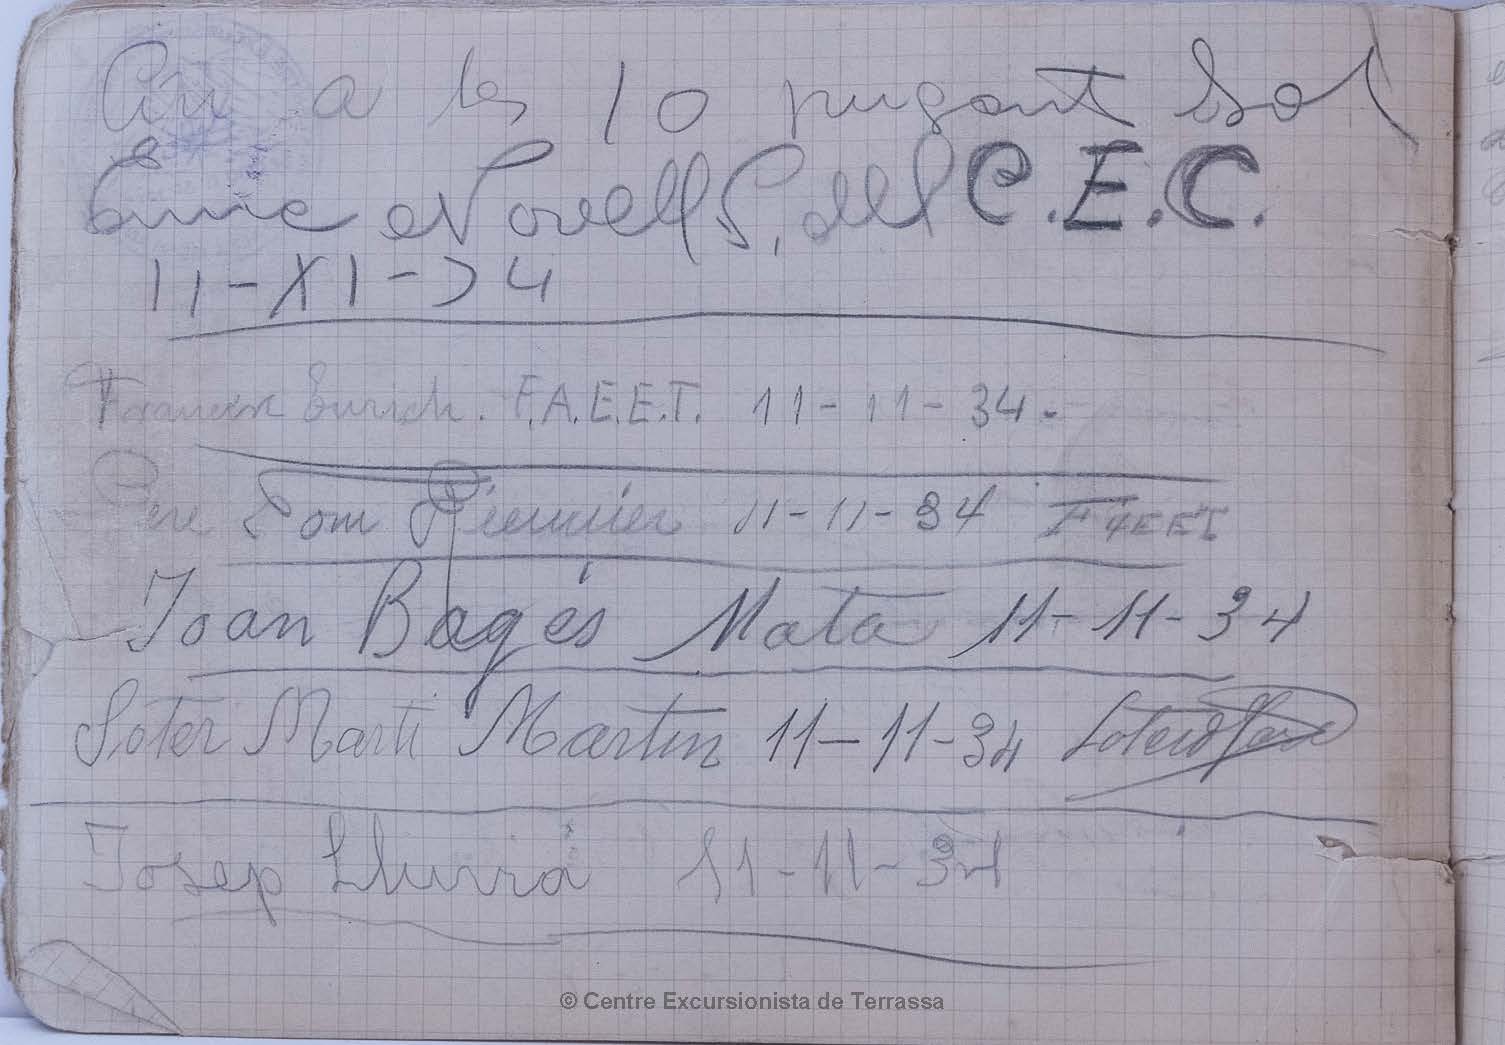 a les 10 pugant Sol
Enric Novell S, del C.E.C.
11-XI-34
Francesc Eurich. F.A.E.E.T. 11-11-34.
Pere Tom 11-11-34 FAEET
Joan Bagés Mata 11-11-34
Sóter Martí Martin 11-11-34
Josep Llurrá 11-11-34
© Centre Excursionista de Terrassa